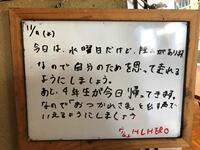 11/9 (水)
今日は、水曜日だけど、陸上があります
なので自分のために思って走れる
ようにしましょう。
あと4年生が今日帰ってきます。
なので"おつかれさま"を
いえるようにしましょう
HERO